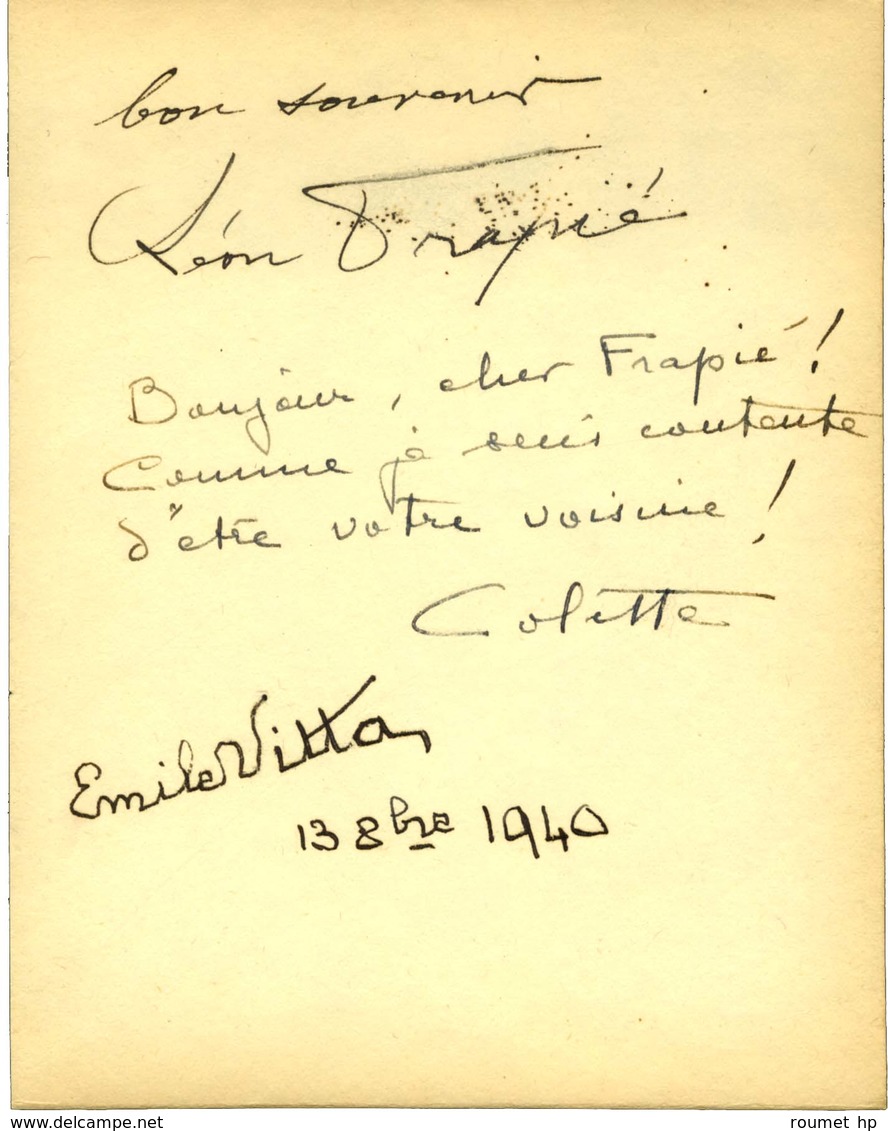 bon souvenir
Léon Frapié
Bonjour, cher Frapié !
Comme je suis contente
d'être votre voisine !
Colette
Emile Vitta
13 8bre 1940
www.delcampe.net
roumet hp